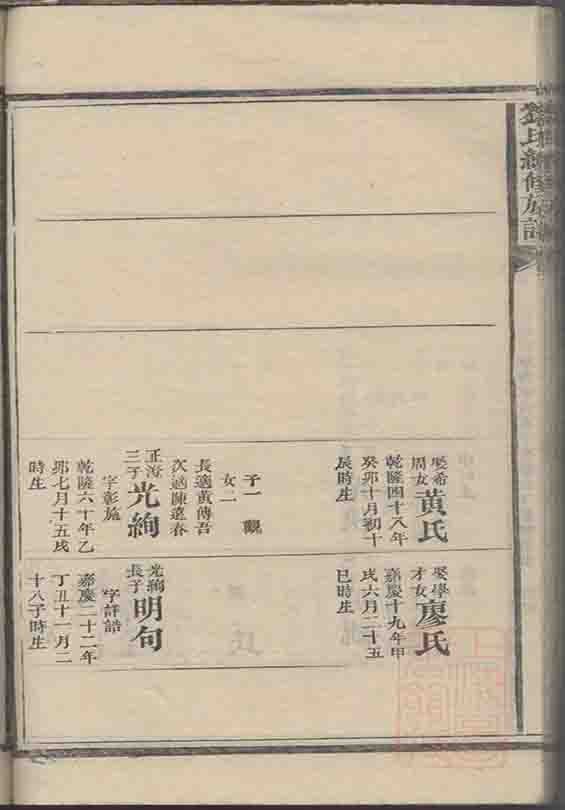 氏續修族譜
娶希
周女
黃氏
乾隆四十八年
癸卯十月初十
辰時生
子一 觀
女二
長適黃傳吾
次適陳遠春
正滂
三子
光絢
字彰施
乾隆六十年乙
卯七月十五戌
時生
娶學
才女
廖氏
嘉慶十九年甲
戌六月二十五
巳時生
光絢
長子
明句
字詳誥
嘉慶二十二年
丁丑十一月二
十八子時生